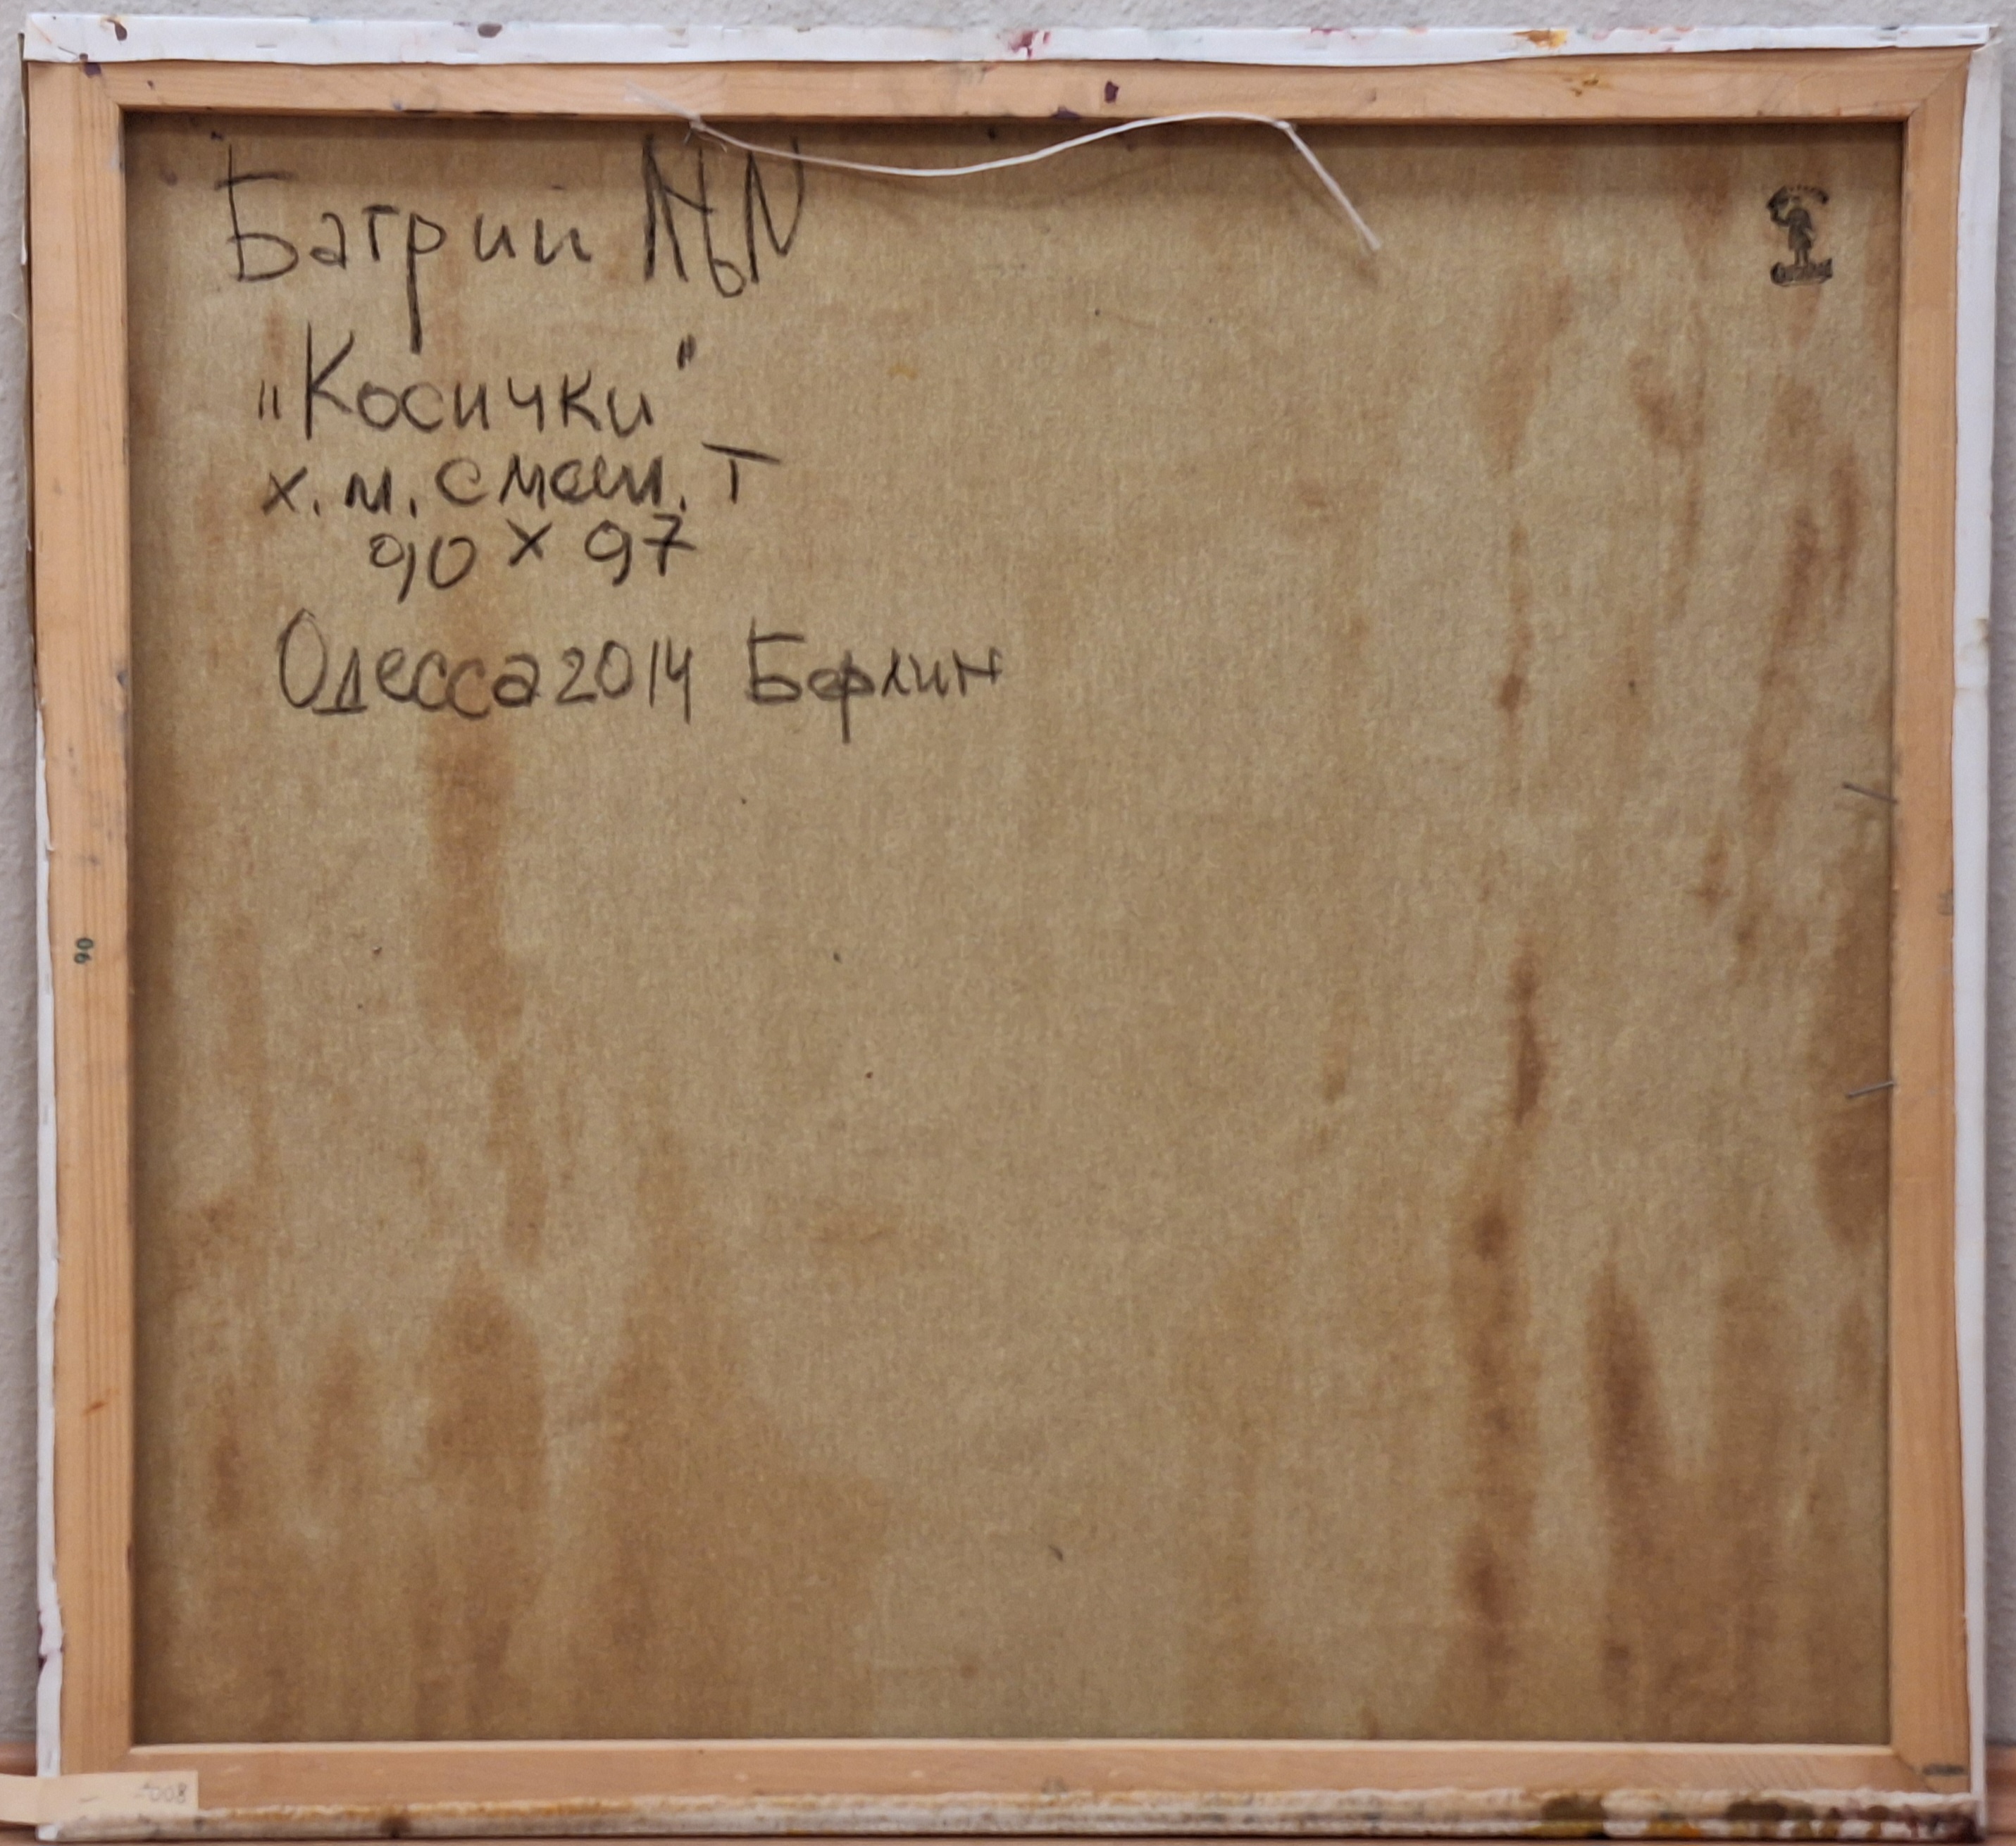 Батрий
„Косички"
х.м. смеш. Т
90 х 97
Одесса 2014 Берлин
90